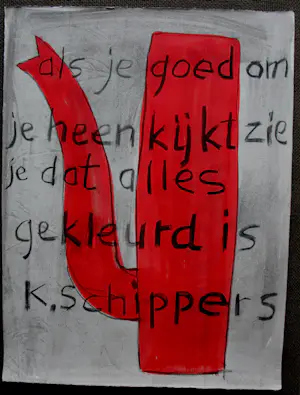 als je goed om
je heen kijkt zie
je dat alles
gekleurd is
K.Schippers